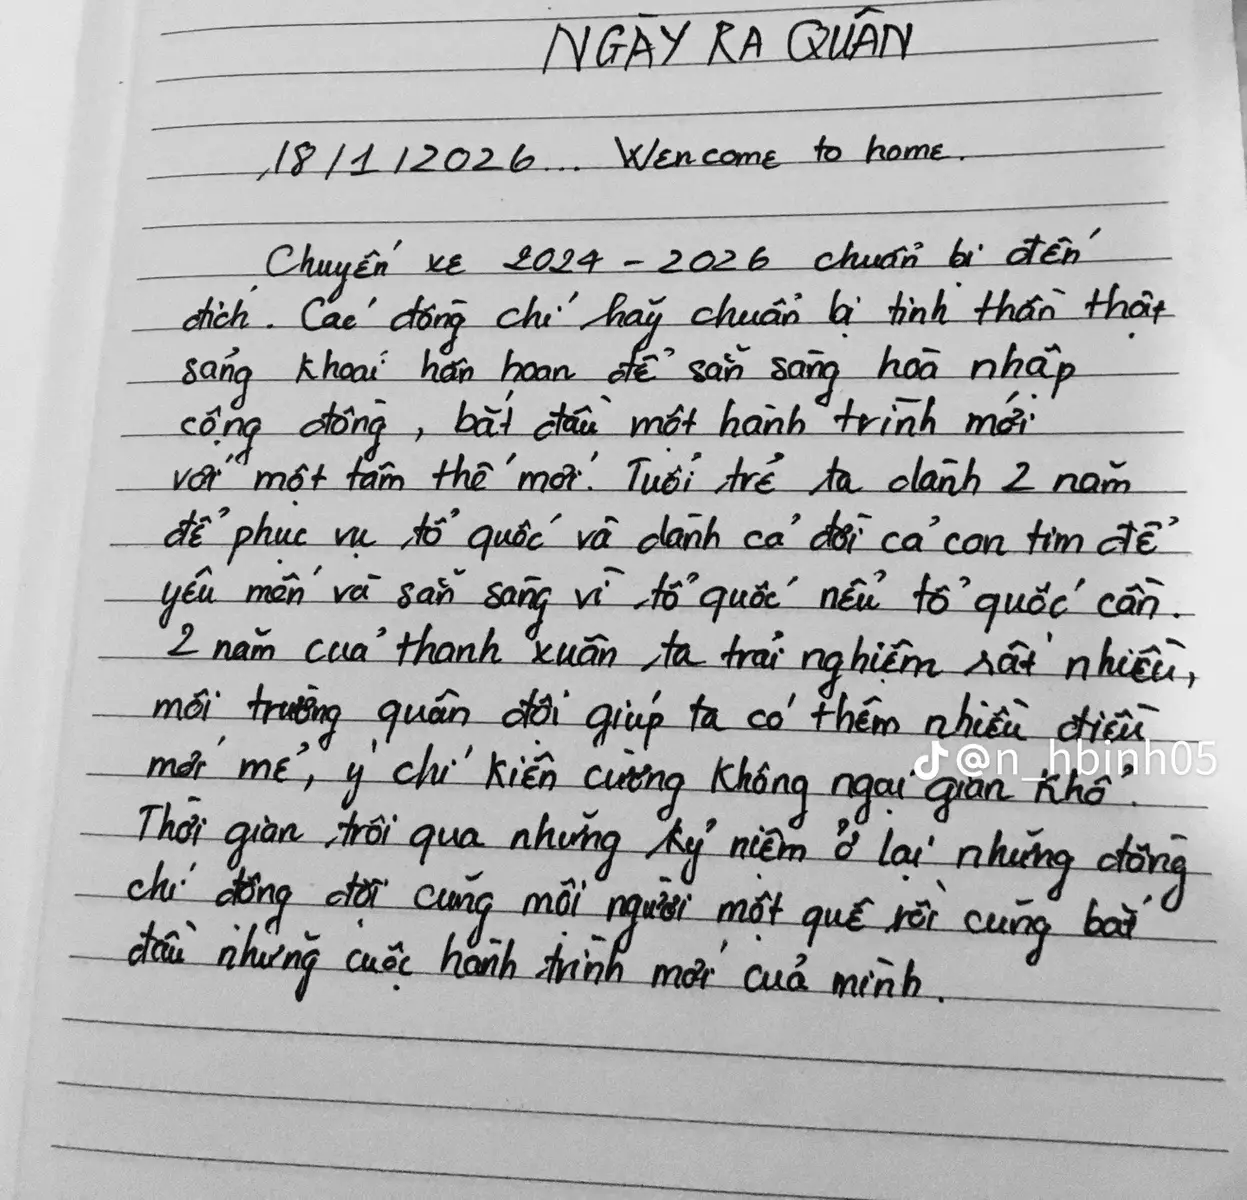 NGÀY RA QUÂN
18/1/2026... Wencome to home.
Chuyến xe 2024 - 2026 chuẩn bị đến
đích. Các đồng chí hãy chuẩn bị tinh thần thật
sảng khoái hân hoan để sẵn sàng hoà nhập
cộng đồng, bắt đầu một hành trình mới
với một tâm thế mới. Tuổi trẻ ta dành 2 năm
để phục vụ tổ quốc và dành cả đời cả con tim để
yêu mến và sẵn sàng vì tổ quốc nếu tổ quốc cần.
2 năm của thanh xuân ta trải nghiệm rất nhiều,
môi trường quân đội giúp ta có thêm nhiều điều
mới mẻ, ý chí kiên cường không ngại gian khổ.
@n_hbinh05
Thời gian trôi qua những kỷ niệm ở lại những đồng
chí đồng đội cũng mỗi người một quê rồi cũng bắt
đầu những cuộc hành trình mới của mình.